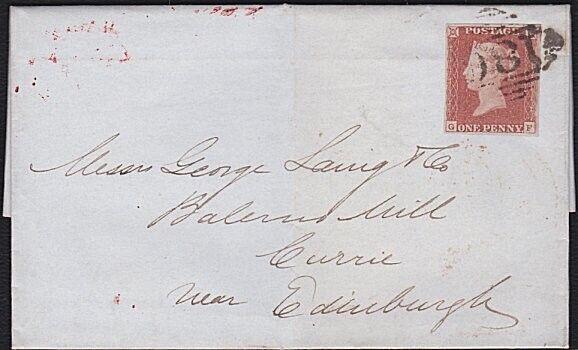 POSTAGE
G ONE PENNY F
Messrs George Laing & Co
Balerno Mill
Currie
near Edinburgh